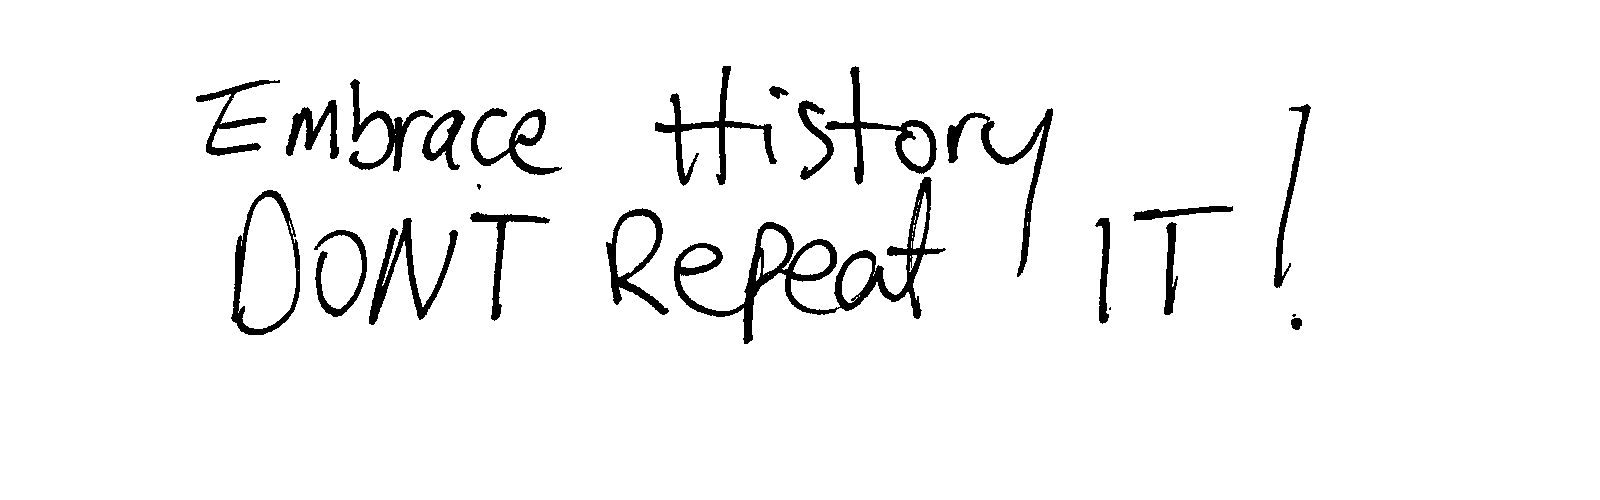 Embrace History
DONT Repeat IT!